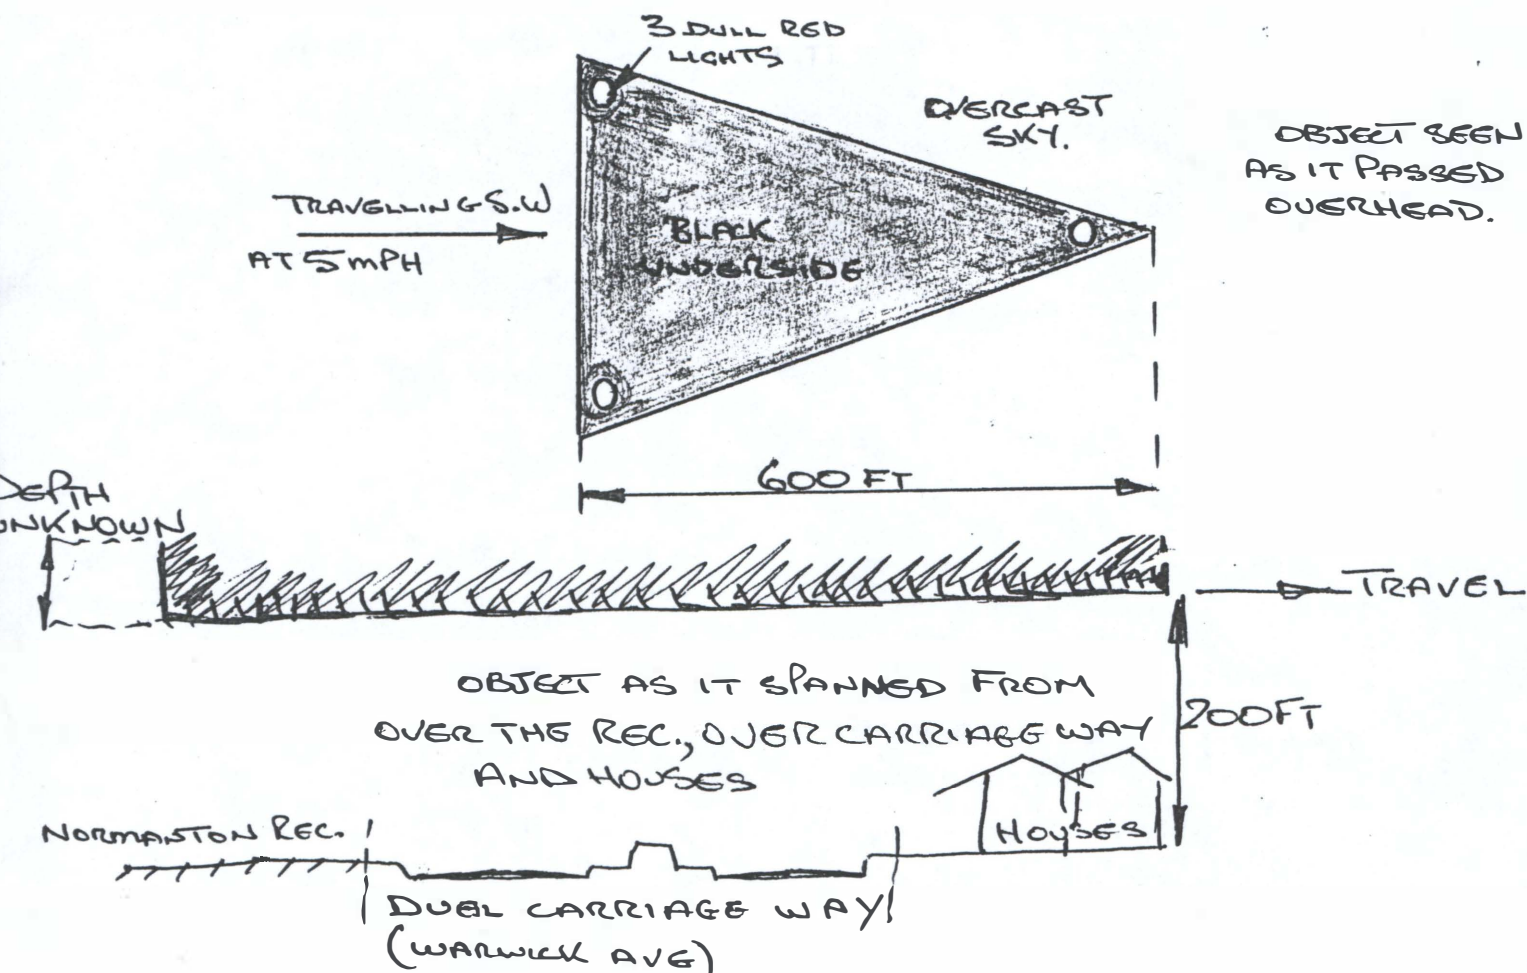 3 DULL RED
LIGHTS
OVERCAST
SKY.
OBJECT SEEN
AS IT PASSED
OVERHEAD.
TRAVELLING S.W
AT 5 MPH
BLACK
UNDERSIDE
600 FT
DEPTH
UNKNOWN
TRAVEL
OBJECT AS IT SPANNED FROM
OVER THE REC., OVER CARRIAGE WAY
AND HOUSES
200FT
NORMANTON REC.
HOUSES
DUEL CARRIAGE WAY
(WARWICK AVE)